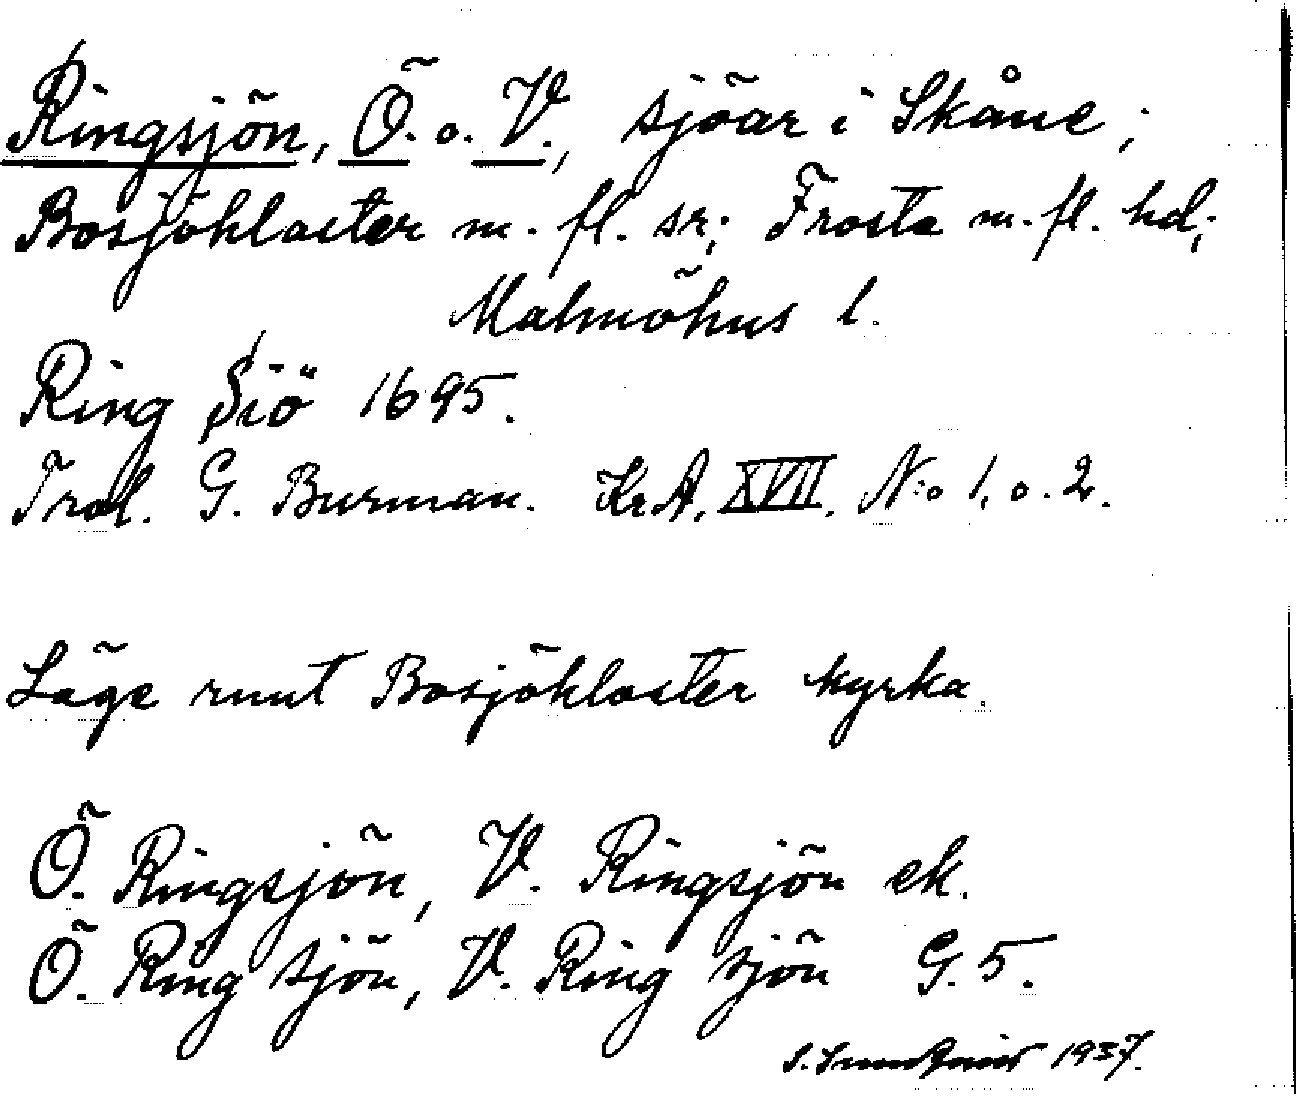 Ringsjön, Ö. o. V., sjöar i Skåne;
Bosjökloster m. fl. sr; Frosta m. fl. hd;
Malmöhus l.
Ring Siö 1695.
Trol. G. Burman. Kr.A. XVII. N:o 1, o. 2.
Läge runt Bosjökloster kyrka.
Ö. Ringsjön, V. Ringsjön ek.
Ö. Ring sjön, V. Ring sjön G. 5.
S. 1937.